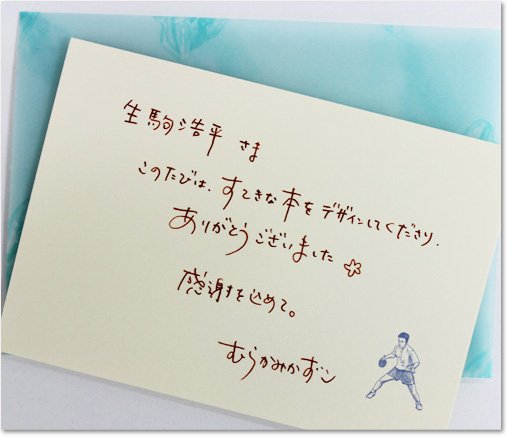 生駒浩平 さま
このたびは、すてきな本をデザインしてくださり、
ありがとうございました
感謝を込めて。
むらかみかずこ